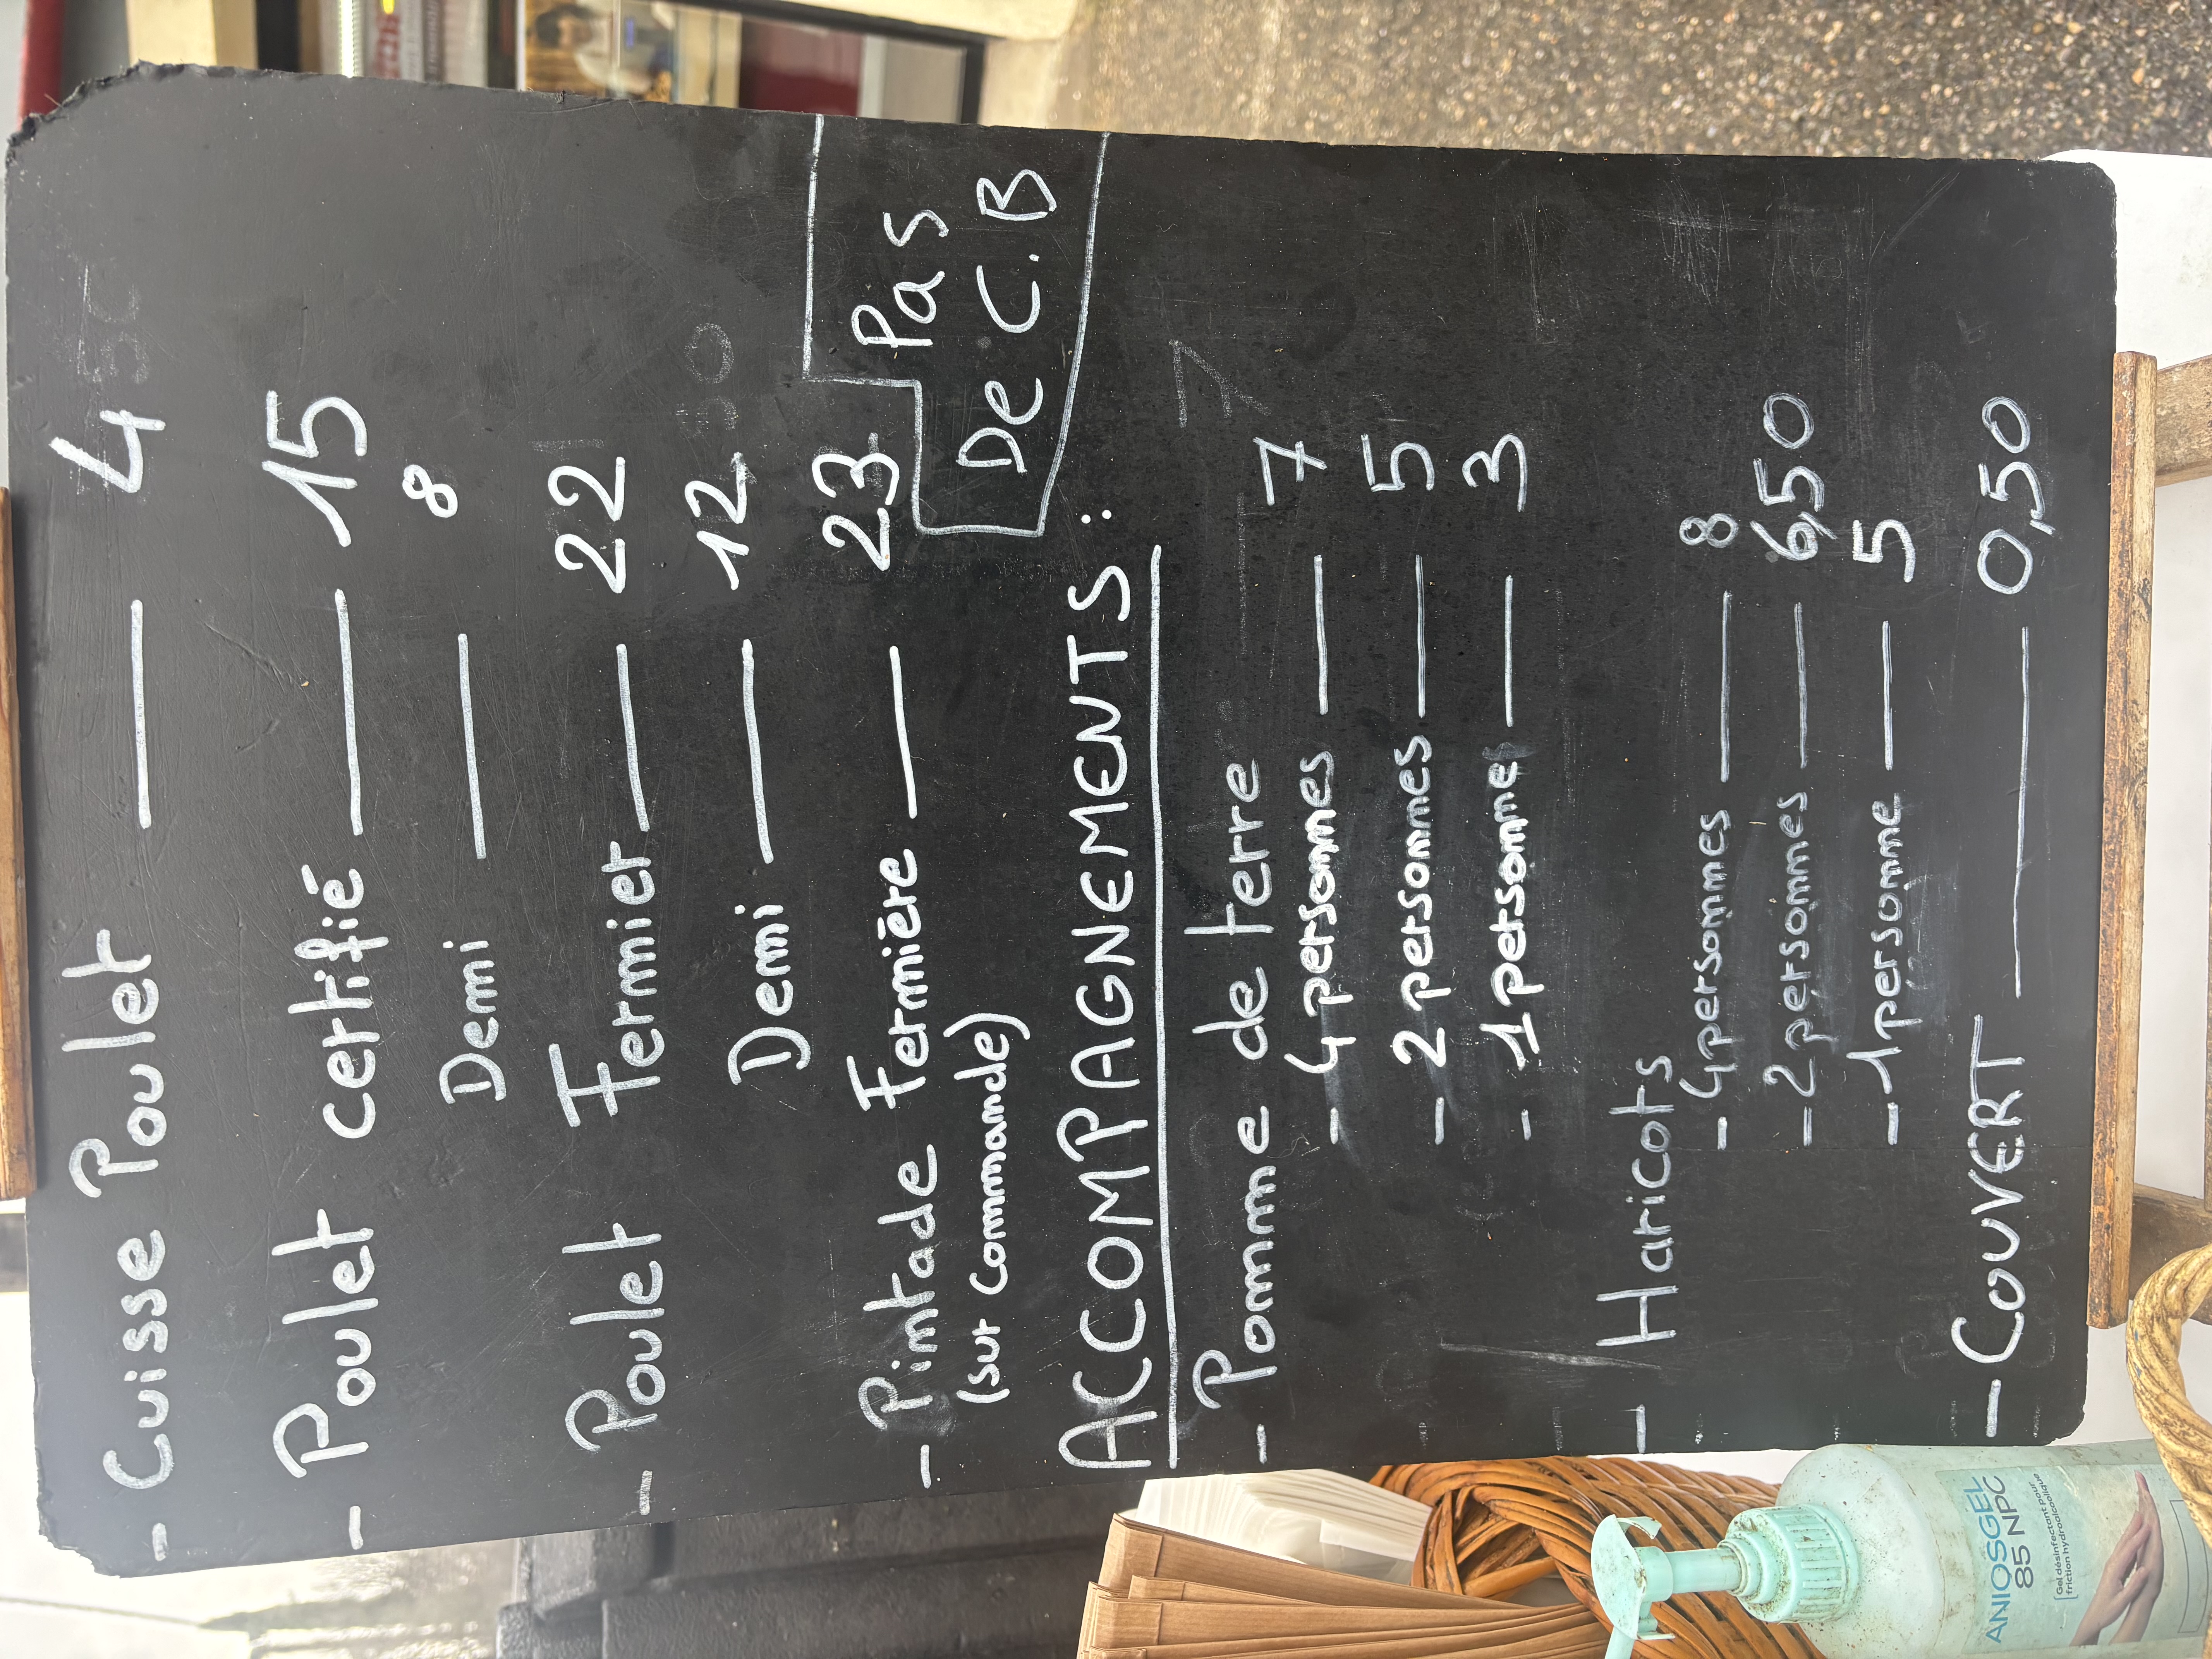 - Cuisse Poulet — 4
- Poulet certifié — 15
Demi — 8
- Poulet Fermier — 22
Demi — 12
- Pintade Fermière — 23
(sur Commande)
Pas
De C.B
ACCOMPAGNEMENTS:
- Pomme de terre
- 4 personnes — 7
- 2 personnes — 5
- 1 personne — 3
- Haricots
- 4 personnes — 8
- 2 personnes — 6,50
- 1 personne — 5
- COUVERT — 0,50
ANIOSGEL
85 NPC
Gel désinfectant pour
friction hydroalcoolique